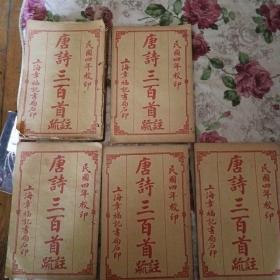 民國四年校印
唐詩三百首註疏
上海章福記書局石印
民國四年校印
唐詩三百首註疏
上海章福記書局石印
民國四年校印
唐詩三百首註疏
上海章福記書局石印
民國四年校印
唐詩三百首註疏
上海章福記書局石印
民國四年校印
唐詩三百首註疏
上海章福記書局石印